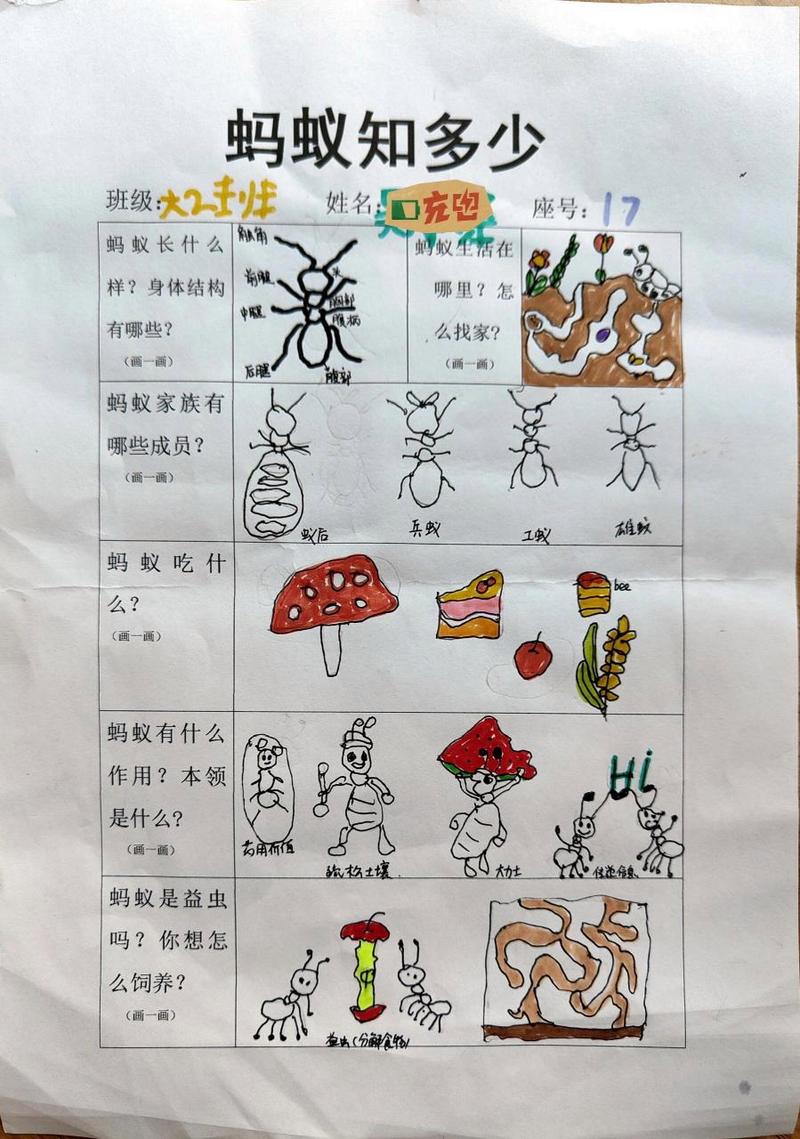 蚂蚁知多少
班级:大2班 姓名: 充电 座号: 17
蚂蚁长什么
样？身体结构
有哪些？
（画一画）
触角
前腿
中腿
后腿
头
胸部
腹柄
腹部
蚂蚁生活在
哪里？怎
么找家?
（画一画）
蚂蚁家族有
哪些成员？
（画一画）
蚁后
兵蚁
工蚁
雄蚁
蚂蚁吃什
么？
（画一画）
bee
蚂蚁有什么
作用？本领
是什么?
（画一画）
药用价值
疏松土壤
大力士
Hi
传递信息
蚂蚁是益虫
吗？你想怎
么饲养？
（画一画）
益虫(分解食物)